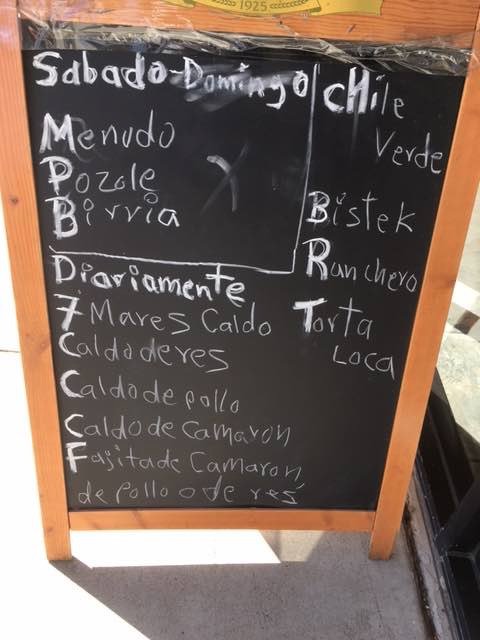 1925
Sabado-Domingo
Menudo
Pozole
Birria
Diariamente
7 Mares Caldo
Caldo de res
Caldo de pollo
Caldo de Camaron
Fajita de Camaron
de pollo o de res
CHile
Verde
Bistek
Ranchero
Torta
Loca